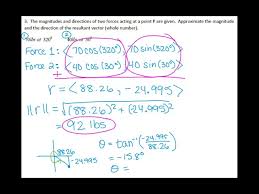 3. The magnitudes and directions of two forces acting at a point P are given. Approximate the magnitude
and the direction of the resultant vector (whole number).
① 70 lbs at 320° ② 40 lbs at 30°
Force 1: <70cos(320°) 70sin(320°)>
Force 2: <40 cos(30°) 40 sin(30°)>
+
r = <88.26, -24.995>
||r|| = √(88.26)² + (-24.995)²
= 92 lbs
θ = tan⁻¹(-24.995/88.26)
88.26
-24.995
= -15.8°
θ =